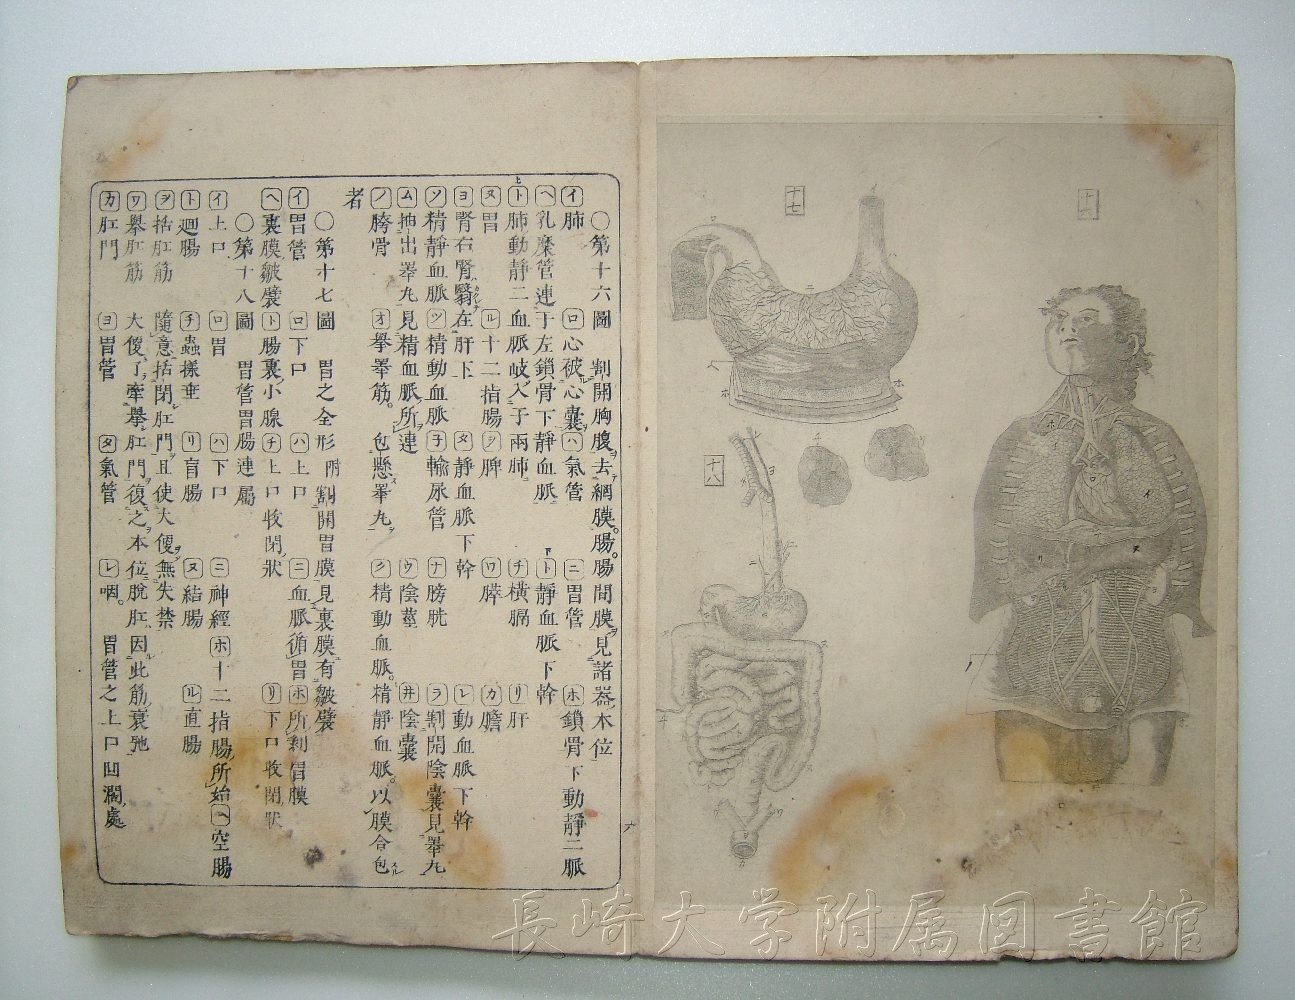 十六
十七
十八
〇第十六圖 割開胸腹去網膜腸腸間膜見諸器本位
イ肺 ロ心被心囊 ハ氣管 ニ胃管 ホ鎖骨下動靜二脈
ヘ乳糜管連于左鎖骨下靜血脈 ト靜血脈下幹
ト肺動靜二血脈岐入于兩肺 チ橫膈 リ肝
ヌ胃 ル十二指腸 ヲ脾 ワ膵 カ膽
ヨ腎右腎翳在肝下 タ靜血脈下幹 レ動血脈下幹
ソ精靜血脈 ツ精動血脈 子輸尿管 ナ膀胱 ラ割開陰囊見睪丸
ム抽出睪丸見精血脈所連 ウ陰莖 井陰囊
ノ胯骨 オ擧睪筋 包懸睪丸 ク精動血脈精靜血脈以膜合包
者
〇第十七圖 胃之全形 附割開胃膜見裏膜有皺襞
イ胃管 ロ下口 ハ上口 ニ血脈循胃 ホ所割胃膜
ヘ裏膜皺襞 ト腸裏小腺 チ上口收閉狀 リ下口收閉狀
〇第十八圖 胃管胃腸連屬
イ上口 ロ胃 ハ下口 ニ神經 ホ十二指腸所始 ヘ空腸
ト廻腸 チ蟲樣垂 リ盲腸 ヌ結腸 ル直腸
ヲ括肛筋 隨意括閉肛門且使大便無失禁
ワ擧肛筋 大便了牽擧肛門復之本位脫肛因此筋衰弛
カ肛門 ヨ胃管 タ氣管 レ咽 胃管之上口凹濶處
長崎大学附属図書館